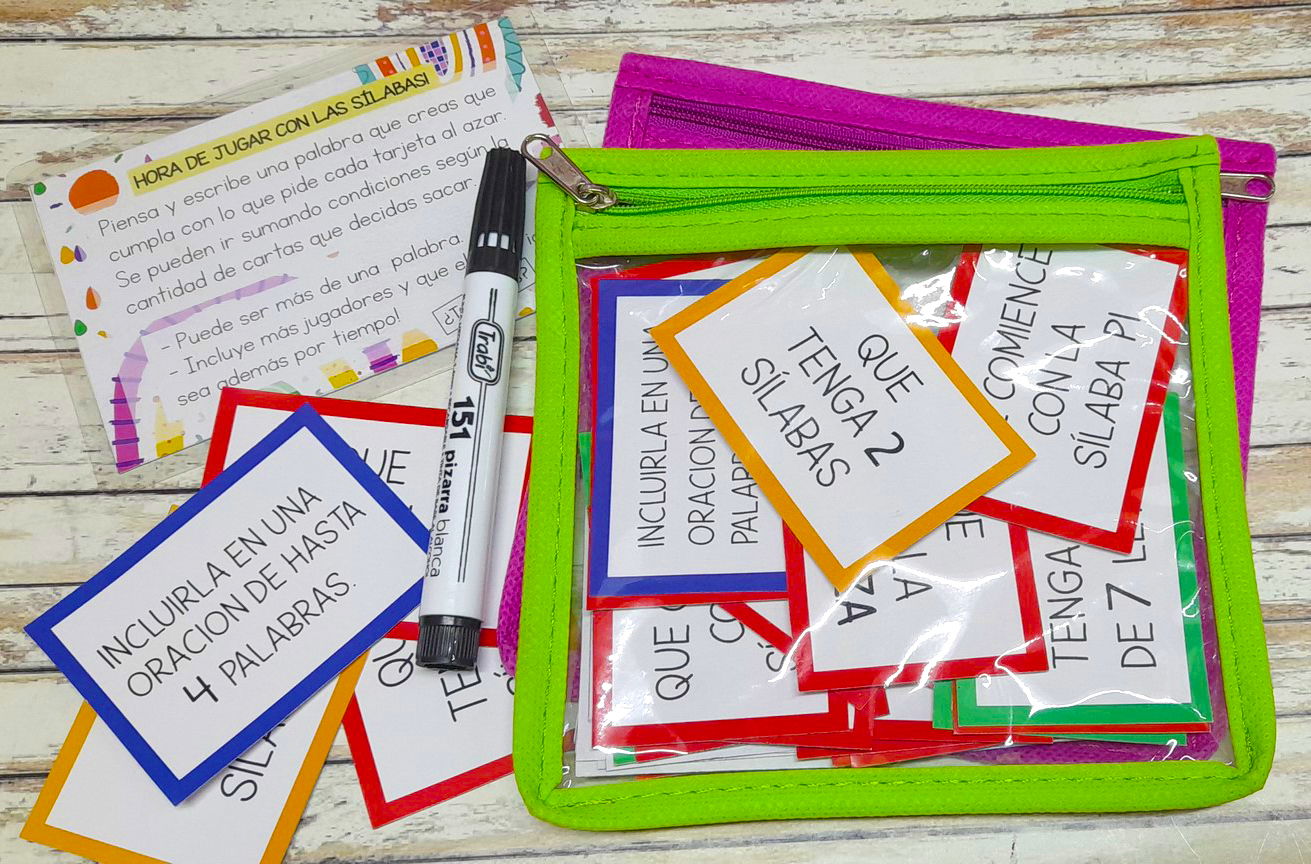 HORA DE JUGAR CON LAS SÍLABAS!
Piensa y escribe una palabra que creas que
cumpla con lo que pide cada tarjeta al azar.
Se pueden ir sumando condiciones según la
cantidad de cartas que decidas sacar.
- Puede ser más de una palabra.
- Incluye más jugadores y que el
sea además por tiempo!
Trabi
151 pizarra blanca
INCLUIRLA EN UNA
ORACION DE HASTA
4 PALABRAS.
INCLUIRLA EN UNA
ORACION DE
QUE
TENGA 2
SÍLABAS
COMIENCE
CON LA
SÍLABA PI
LA
TENGA
DE 7
QUE